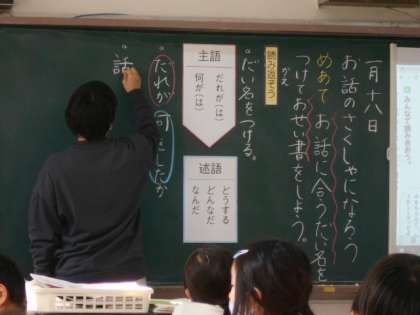 みんなで読み合おう。
一月十八日
お話のさくしゃになろう
めあて お話に合うだい名を
つけて、せい書をしよう。
読み返そう
かえ
・だい名をつける。
主語
だれが(は)
何が(は)
述語
どうする
どんなだ
なんだ
・だれが何をしたか
・話